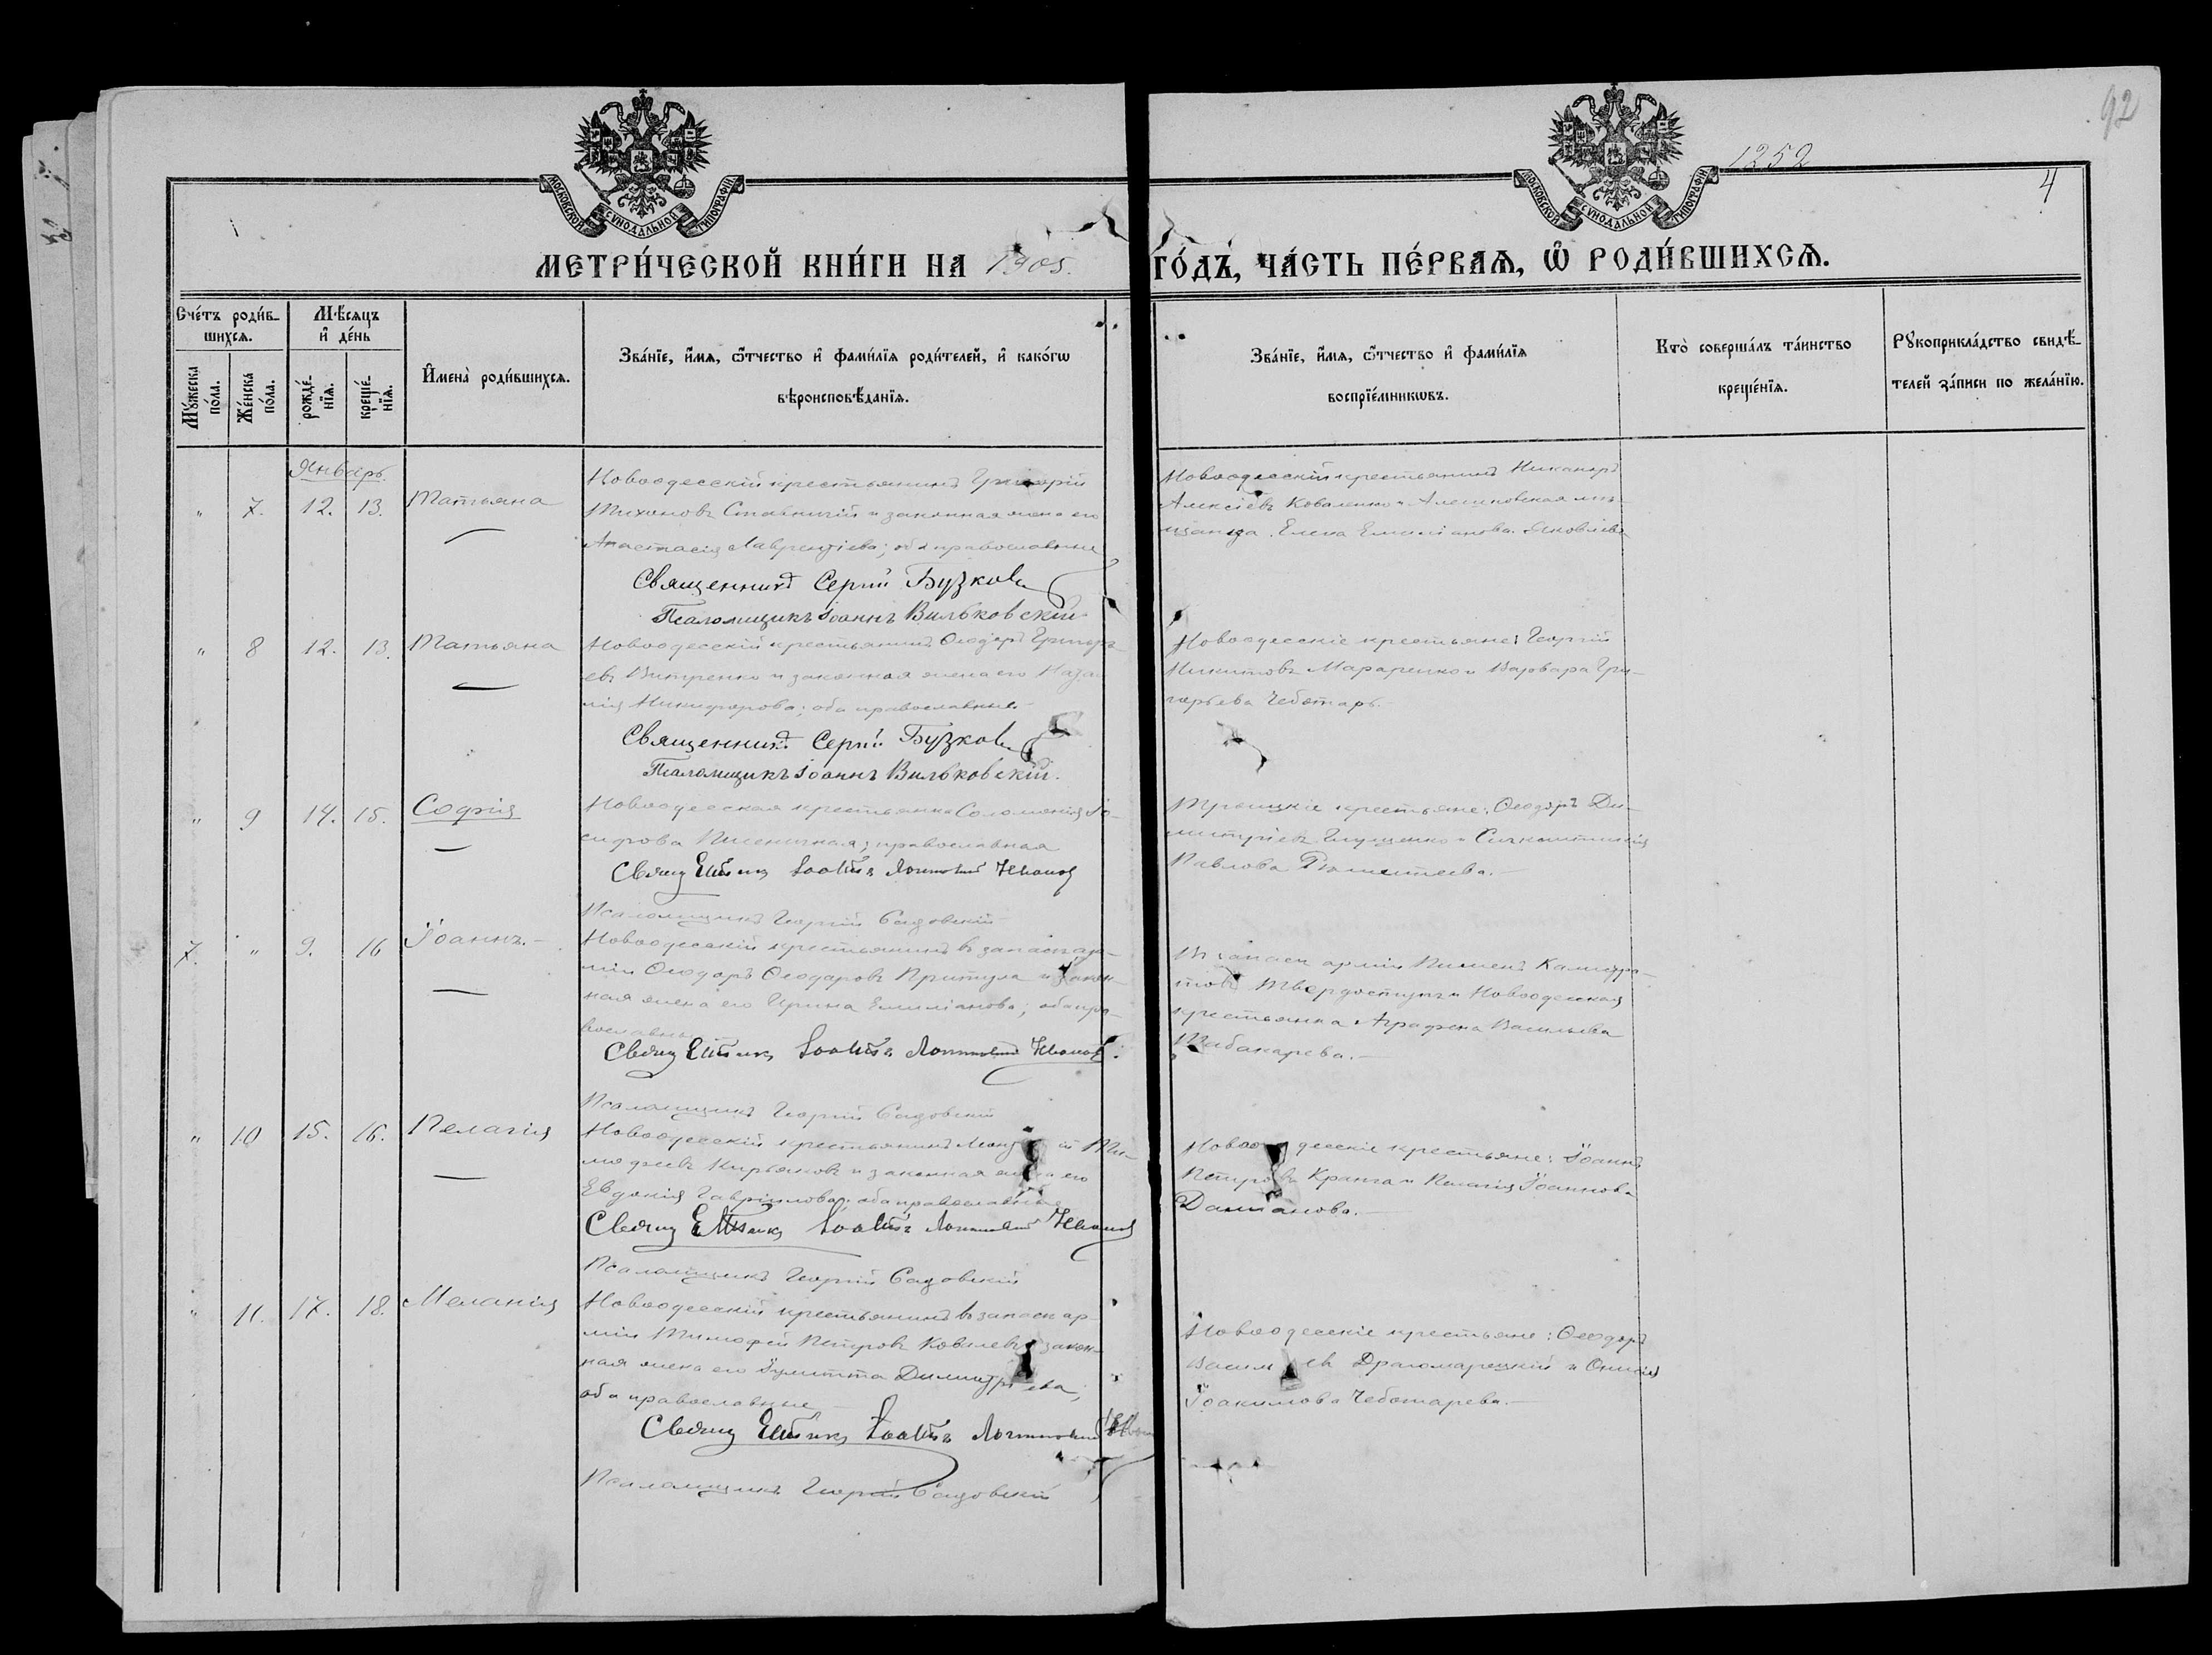 92
1252
4
МОСКОВСКОЙ СѴНОДАЛЬНОЙ ТИПОГРАФІИ
МОСКОВСКОЙ СѴНОДАЛЬНОЙ ТИПОГРАФІИ
МЕТРИ́ЧЕСКОЙ КНИ́ГИ НА 1905. ГО́ДЪ, ЧА́СТЬ ПЕ́РВАЯ, Ѡ҆ РОДИ́ВШИХСЯ.
Сче́тъ роди́в-
шихся.
Му́жеска по́ла.
Же́нска по́ла.
Мѣ́сяцъ
и҆ де́нь
рожде́-
нїя.
креще́-
нїя.
И҆мена̀ роди́вшихся.
Зва́нїе, и҆́мя, ѻ҆́тчество и҆ фами́лїя роди́телей, и҆ како́гѡ
вѣроисповѣ́данїя.
Зва́нїе, и҆́мя, ѻ҆́тчество и҆ фами́лїя
воспрїе́мникѡвъ.
Кто̀ соверша́лъ та́инство
креще́нїя.
Рꙋкоприкла́дство свидѣ́-
телей за́писи по жела́нїю.
Январь.
" 7. 12. 13. Татьяна
Новоодесскій крестьянинъ Григорій
Тихоновъ Ставничій и законная жена его
Анастасія Лаврентіева; оба православные
Священникъ Сергій Бузков
Псаломщикъ Іоаннъ Вильковскій
Новоодесскій крестьянинъ Никаноръ
Алексіевъ Коваленко и Алешковская мѣ-
щанка Елена Емиліанова Яковлева
" 8 12. 13. Татьяна
Новоодесскій крестьянинъ Ѳеодоръ Григорь-
евъ Витренко и законная жена его Ната-
лія Никифорова; оба православные.
Священникъ Сергій Бузков
Псаломщикъ Іоаннъ Вильковскій.
Новоодесскіе крестьяне: Георгій
Никитовъ Мараренко и Варвара Гри-
горьева Чеботарь.
" 9 14. 15. Софія
Новоодесская крестьянка Соломонія Іо-
сифова Пшеничная; православная
Псаломщикъ Георгій Садовскій
Троицкіе крестьяне: Ѳеодоръ Ди-
митріевъ Глущенко и Синклитикія
Павлова
7. " 9. 16 Іоаннъ.
Новоодесскій крестьянинъ въ запасѣ ар-
міи Ѳеодоръ Ѳеодоровъ Притула и закон-
ная жена его Ирина Емиліанова; оба пра-
вославные
Псаломщикъ Георгій Садовскій
Въ запасѣ арміи Пименъ
Твердоступъ и Новоодесская
крестьянка Аграфена Васильева
Табакарева.
" 10 15. 16. Пелагія
Новоодесскій крестьянинъ Ти-
мофеевъ Кирьяковъ и законная жена его
Евдокія Гавріилова; оба православные
Псаломщикъ Георгій Садовскій
Новоодесскіе крестьяне: Іоаннъ
Петровъ и Пелагія Іоаннова
Даміанова.
" 11. 17. 18. Меланія
Новоодесскій крестьянинъ въ запасѣ ар-
міи Тимофей Петровъ Ковалевъ и закон-
ная жена его Іулитта Димитріева;
оба православные
Псаломщикъ Георгій Садовскій
Новоодесскіе крестьяне: Ѳеодоръ
Васильевъ Драгомарецкій и Онисія
Іоакимова Чеботарева.